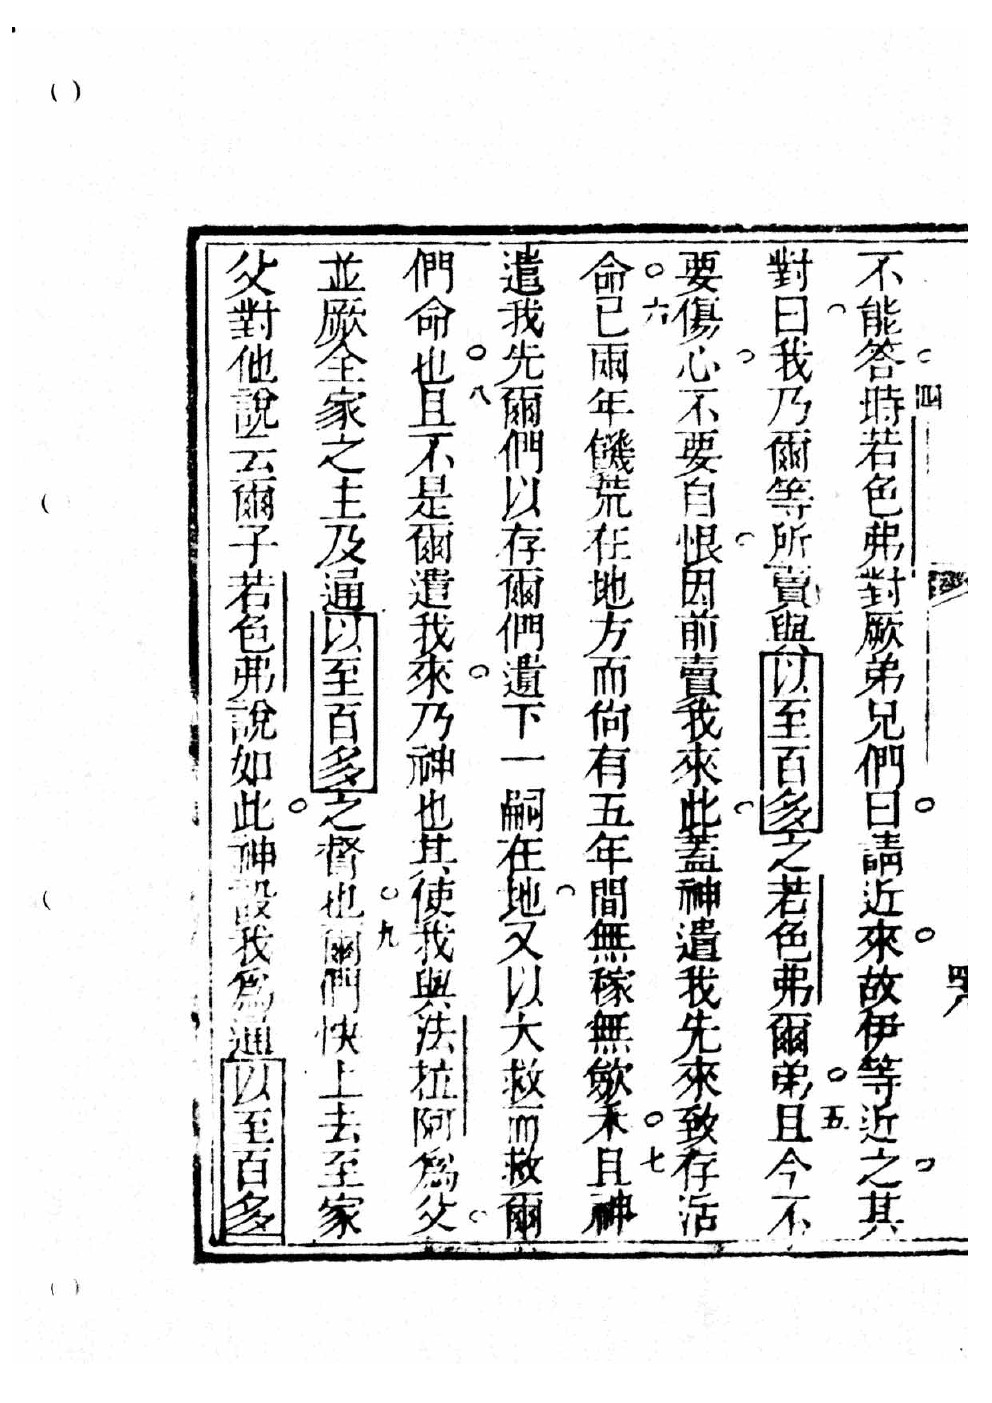 不能答四時若色弗對厥弟兄們曰請近來故伊等近之其
對曰我乃爾等所賣與以至百多之若色弗爾弟五且今不
要傷心不要自恨因前賣我來此蓋神遣我先來致存活
命六已兩年饑荒在地方而尙有五年間無稼無歛禾七且神
遣我先爾們以存爾們遺下一嗣在地又以大救而救爾
們命也八且不是爾遣我來乃神也其使我與法拉阿爲父
並厥全家之主及通以至百多之督也九爾們快上去至家
父對他說云爾子若色弗說如此神設我爲通以至百多